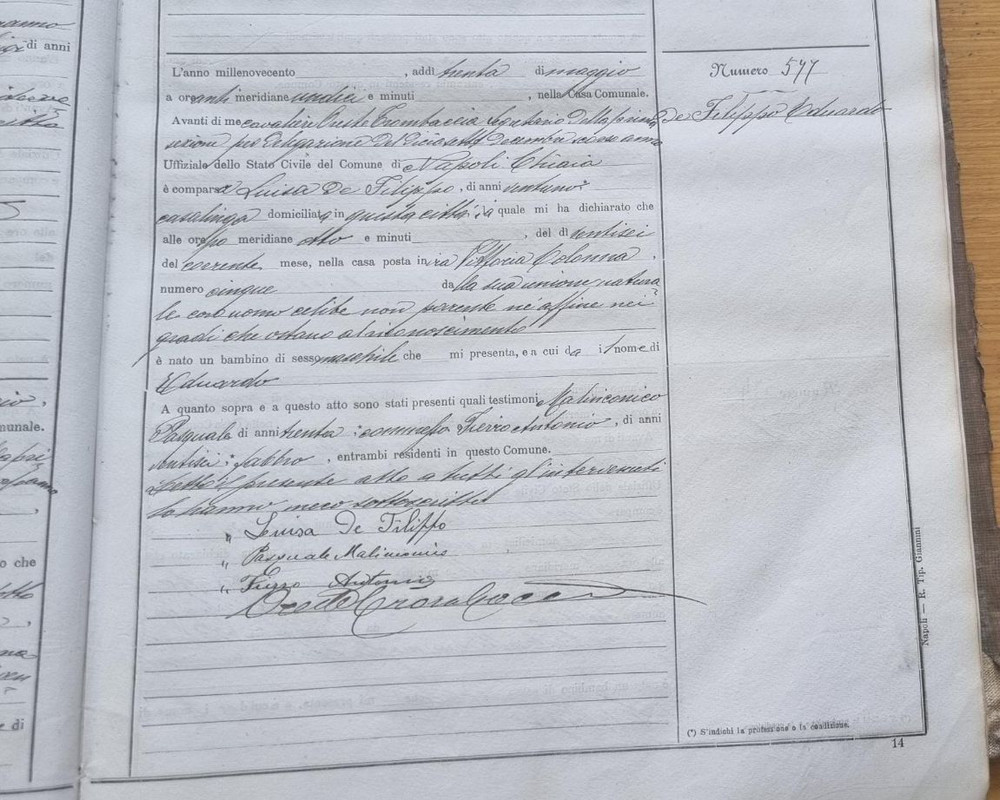 Numero 577
De Filippo Eduardo
L'anno millenovecento , addì trenta di maggio
a ore anti meridiane undici e minuti , nella Casa Comunale.
Avanti di me cavaliere Oreste Trombaccia Segretario della prima
sezione per delegazione del diciassette decembre scorso anno
Uffiziale dello Stato Civile del Comune di Napoli Chiaia
è comparsa Luisa De Filippo , di anni ventuno
casalinga domiciliata in questa città la quale mi ha dichiarato che
alle ore po meridiane otto e minuti , del dì ventisei
del corrente mese, nella casa posta in via Vittoria Colonna
numero cinque dalla sua unione natura
le con uomo celibe non parente nè affine nei
gradi che ostano al riconoscimento
è nato un bambino di sesso maschile che mi presenta, e a cui da il nome di
Eduardo
A quanto sopra e a questo atto sono stati presenti quali testimoni Malinconico
Pasquale di anni trenta commesso Fierro Antonio , di anni
ventisei fabbro , entrambi residenti in questo Comune.
Letto il presente atto a tutti gl'intervenuti
lo hanno meco sottoscritto
" Luisa De Filippo
" Pasquale Malinconico
" Fierro Antonio
(*) S'indichi la professione o la condizione.
14
Napoli — R. Tip. Giannini
di anni
munale.
o che
e di